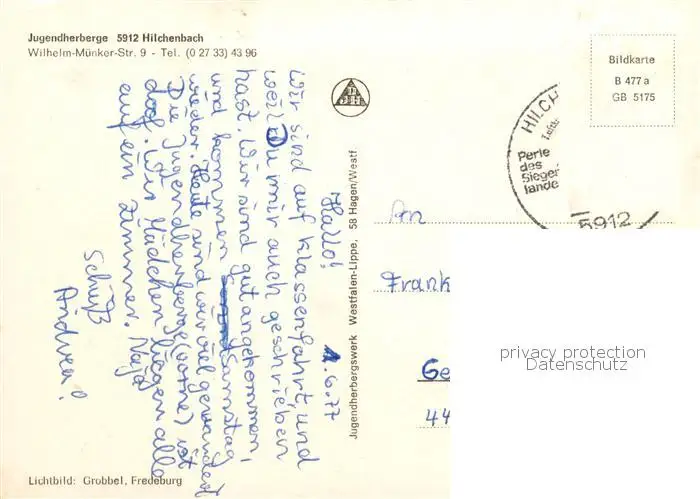 Jugendherberge 5912 Hilchenbach
Wilhelm-Münker-Str. 9 - Tel. (0 27 33) 43 96
Bildkarte
B 477 a
GB 5175
HILCH
Perle
des
Sieger
lande
5912
1.6.77
Hallo!
Wir sind auf Klassenfahrt, und
weil Du mir auch geschrieben
hast. Wir sind gut angekommen,
und kommen Samstag
wieder. Heute sind wir viel gewandert
Die Jugendherberge (vorne) ist
doof. Wir Mädchen liegen alle
auf ein Zimmer. Naja
Schüß
Andrea!
Jugendherbergswerk Westfalen-Lippe, 58 Hagen/Westf
An
Frank
Ge
44
privacy protection
Datenschutz
Lichtbild: Grobbel, Fredeburg